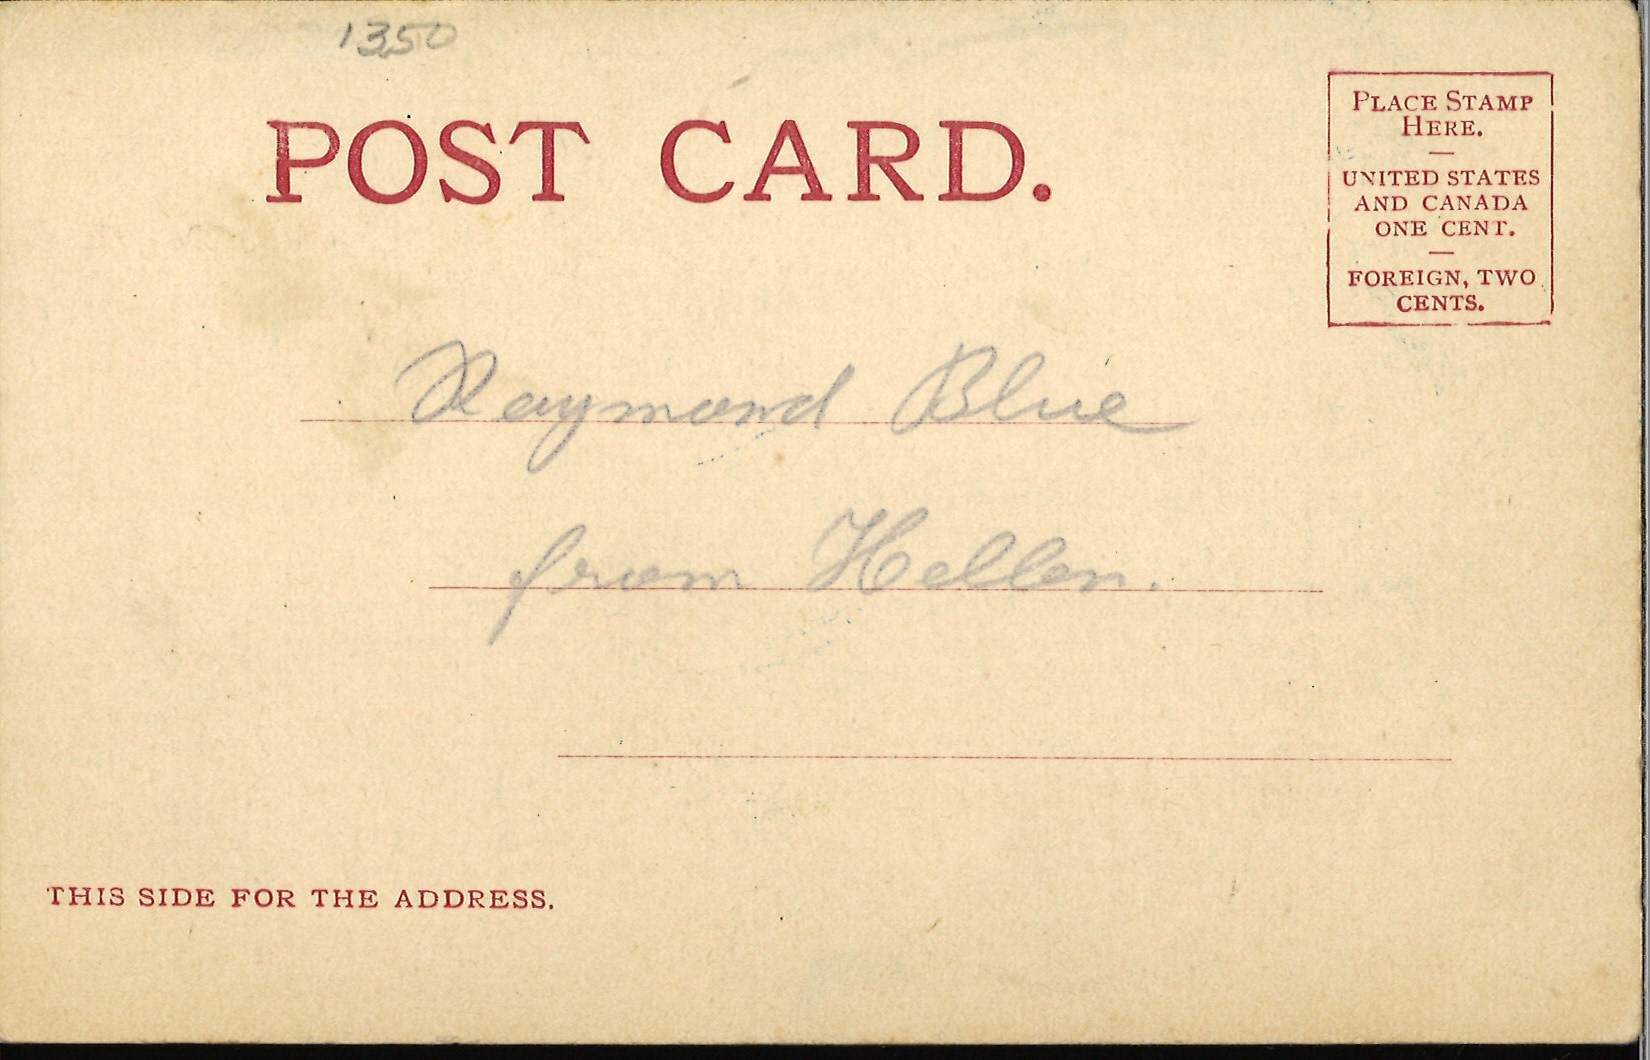 1350
POST CARD.
PLACE STAMP
HERE.
UNITED STATES
AND CANADA
ONE CENT.
FOREIGN, TWO
CENTS.
Raymond Blue
from Hellen.
THIS SIDE FOR THE ADDRESS.